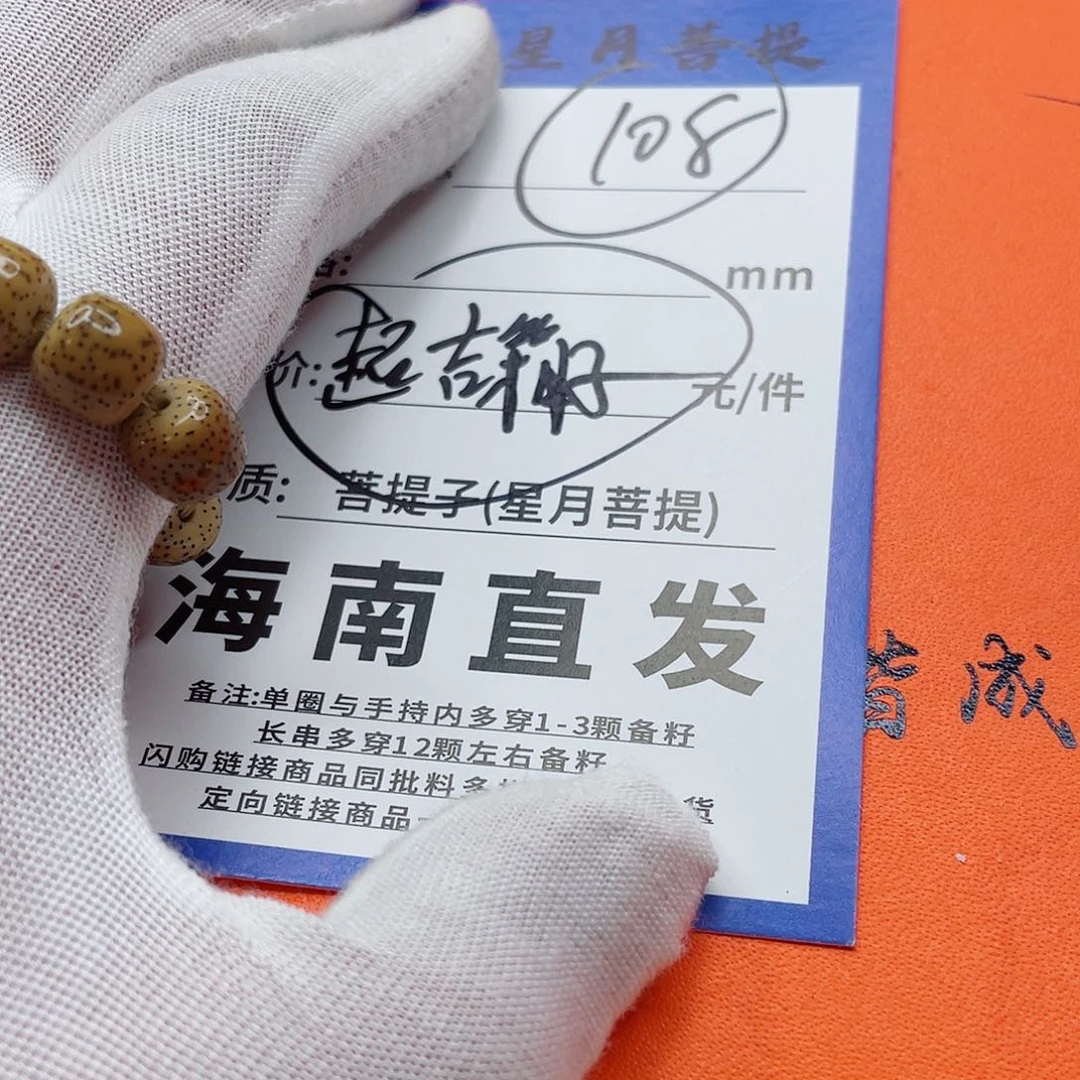 星月菩提
108
mm
价:
元/件
质: 菩提子(星月菩提)
海南直发
备注:单圈与手持内多穿1-3颗备籽
长串多穿12颗左右备籽
闪购链接商品同批料多
定向链接商品
货